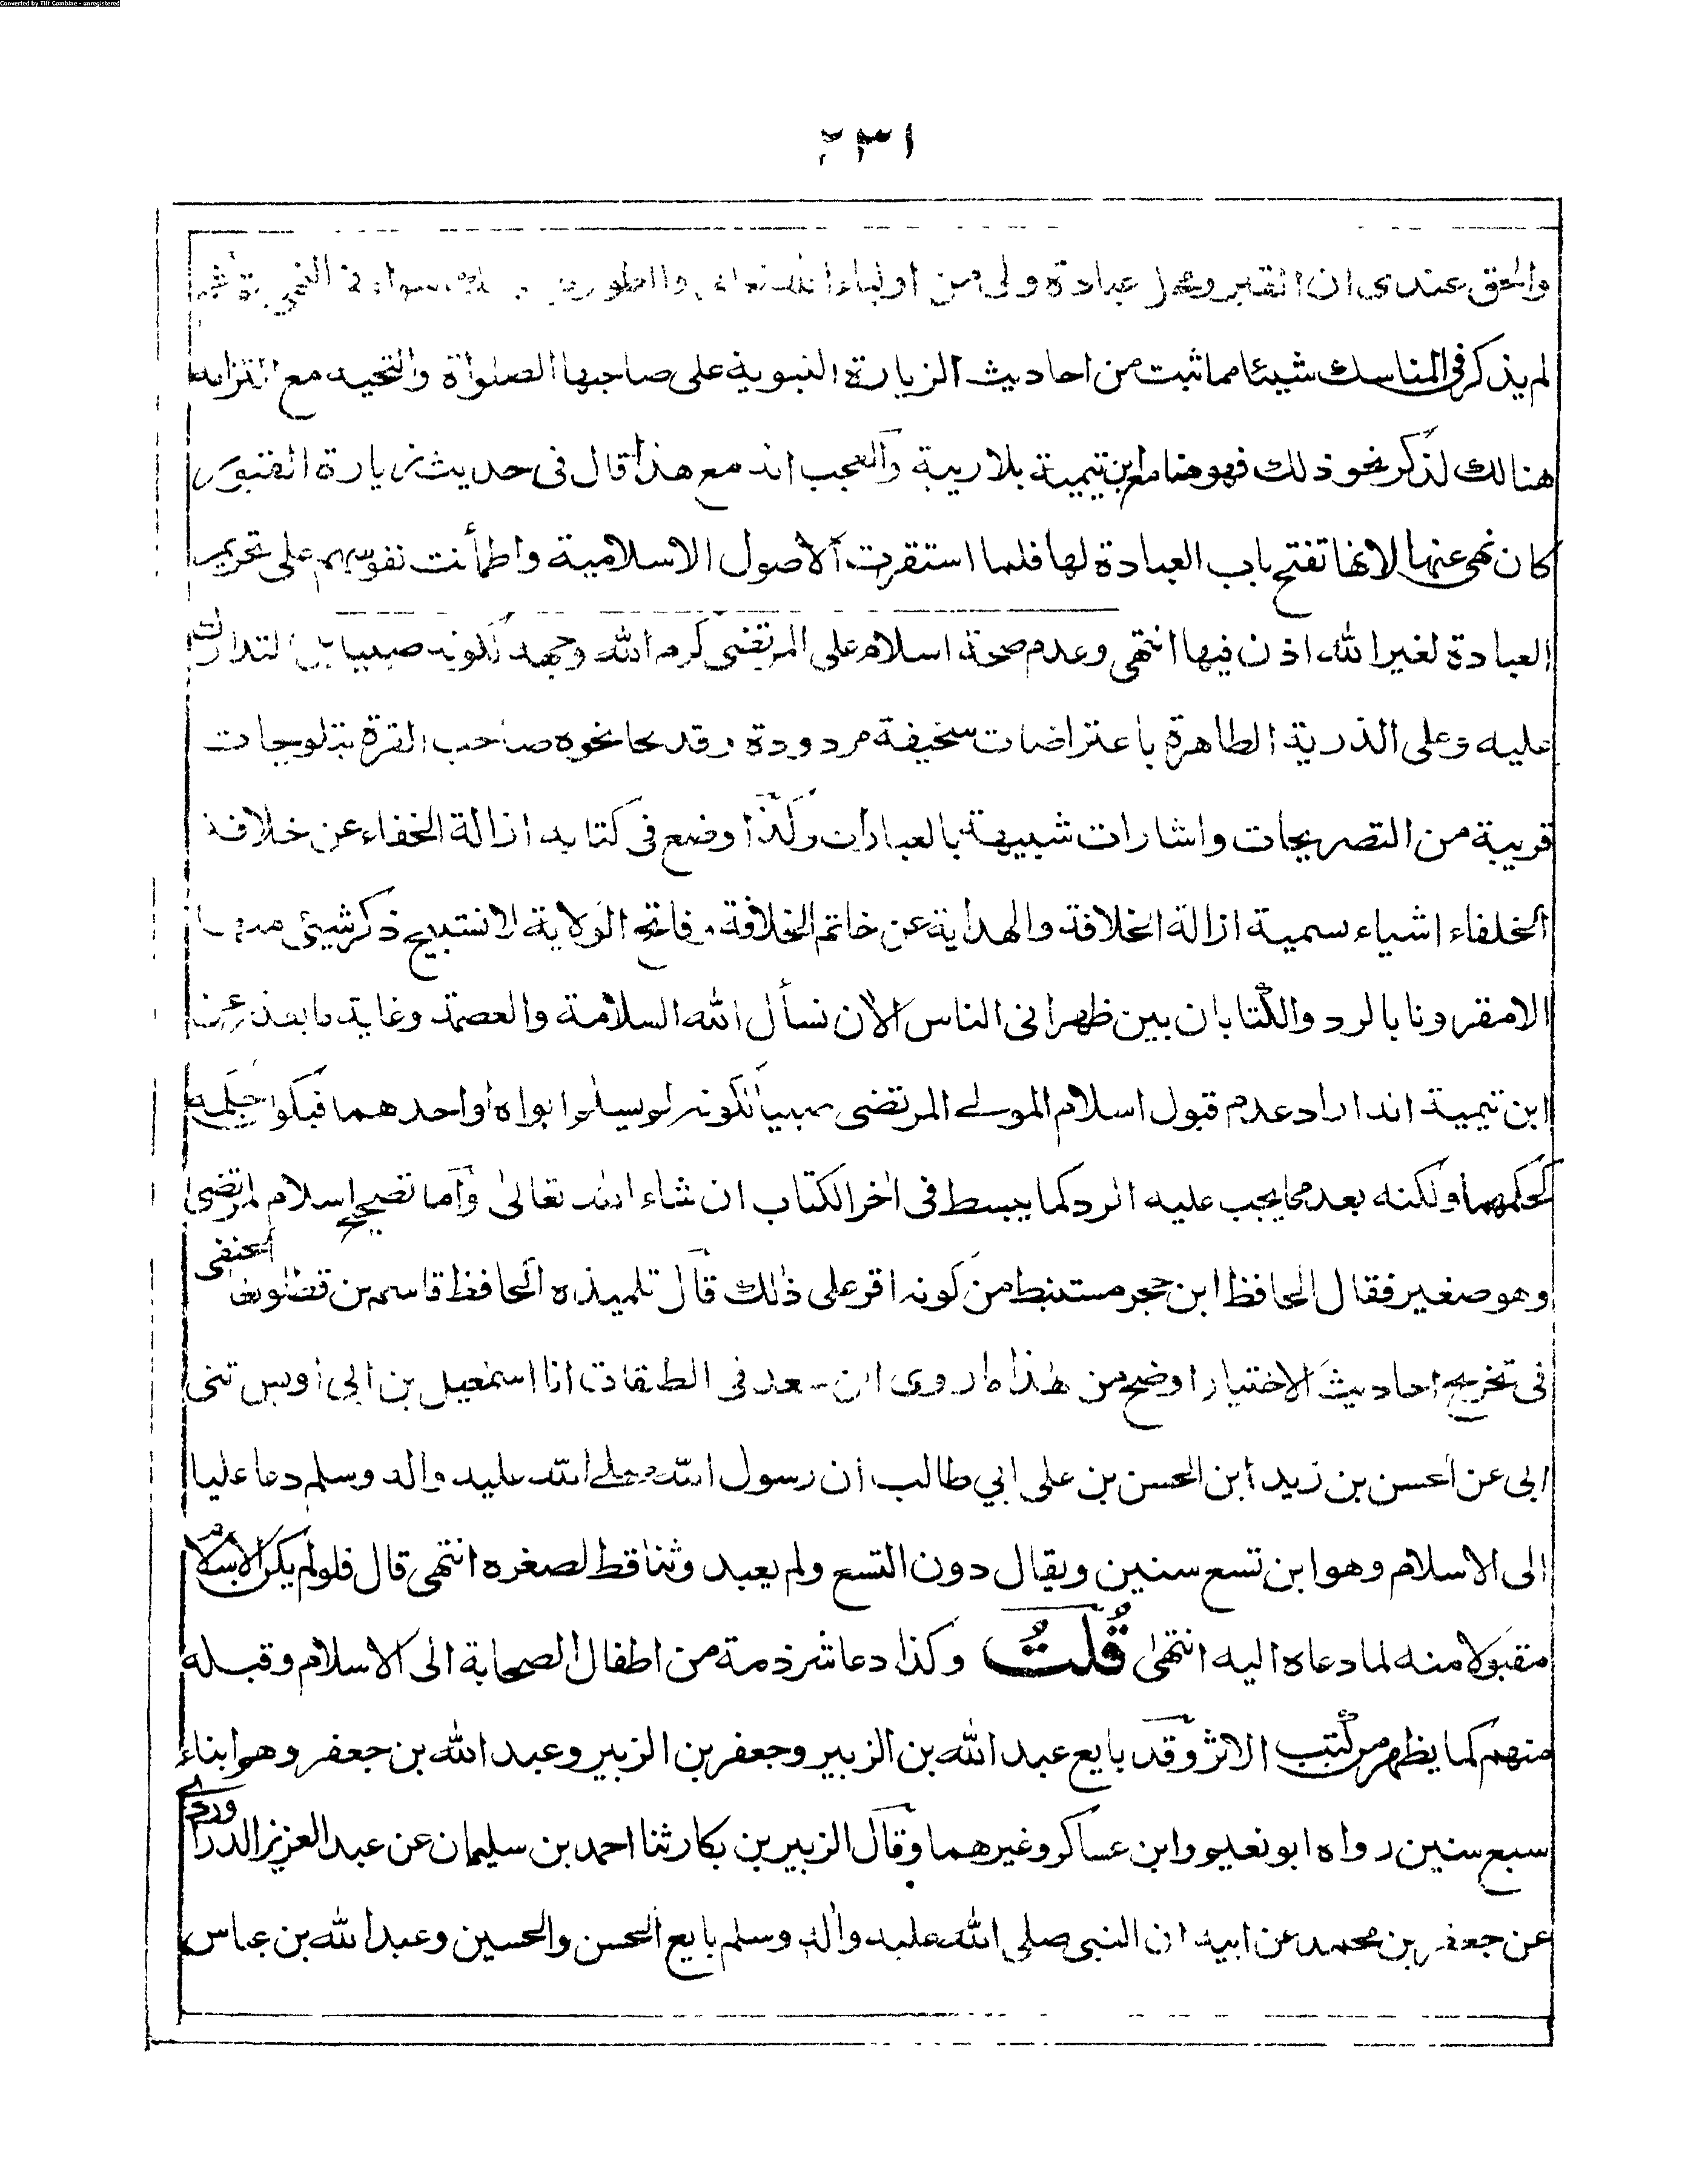 Converted by Tiff Combine - unregistered
٢٣١
والحق عندى ان القبر ومحل عبادة ولى من اولياء الله والطور سواء فى النهى
لم يذكر فى المناسك شيئا مما ثبت من احاديث الزيارة النبوية على صاحبها الصلواة والتحية مع التزامه
هنالك لذكر نحو ذلك فهو ابن تيمية بلا ريبة والعجب انه مع هذا قال فى حديث زيارة القبور
كان نهى عنها لانها تفتح باب العبادة لها فلما استقرت الاصول الاسلامية واطمأنت نفوسهم على تحريم
العبادة لغير الله اذن فيها انتهى وعدم صحة اسلام على المرتضى كرم الله وجهه لكونه صبيا
عليه وعلى الذرية الطاهرة باعتراضات سخيفة مردودة وقد نحا نحوه صاحب القرة بتلويحات
قريبة من التصريحات واشارات شبيهة بالعبارات وكذا وضع فى كتابه ازالة الخفاء عن خلافة
الخلفاء اشياء سمية ازالة الخلافة والهداية عن خاتم الخلافة وفاتح الولاية لا نستبيح ذكر شيئ منها
الا مقرونا بالرد والكتابان بين ظهرانى الناس الان نسأل الله السلامة والعصمة وغاية ما
ابن تيمية انه اراد عدم قبول اسلام المولى المرتضى صبيا لكونه لم يسلم ابواه او احدهما فيكون حكمه
كحكمهما ولكنه بعد مما يجب عليه الرد كما يبسط فى اخر الكتاب ان شاء الله تعالى واما تصحيح اسلام المرتضى
وهو صغير فقال الحافظ ابن حجر مستنبط من كونه اقر على ذلك قال تلميذه الحافظ قاسم بن قطلوبغا الحنفى
فى تخريج احاديث الاختيار اوضح من هذا ما روى ابن سعد فى الطبقات انا اسمعيل بن ابى اويس ثنى
ابى عن الحسن بن زيد ابن الحسن بن على ابي طالب ان رسول الله صلى الله عليه واله وسلم دعا عليا
الى الاسلام وهو ابن تسع سنين ويقال دون التسع ولم يعبد وثنا قط لصغره انتهى قال فلو لم يكن الاسلام
مقبولا منه لما دعاه اليه انتهى قُلْتُ وكذا دعا شرذمة من اطفال الصحابة الى الاسلام وقبله
منهم كما يظهر من كتب الاثر وقد بايع عبد الله بن الزبير وجعفر بن الزبير وعبد الله بن جعفر وهم ابناء
سبع سنين رواه ابو نعيم وابن عساكر وغيرهما وقال الزبير بن بكار ثنا احمد بن سليمان عن عبد العزيز الدراوردى
عن جعفر بن محمد عن ابيه ان النبى صلى الله عليه واله وسلم بايع الحسن والحسين وعبد الله بن عباس